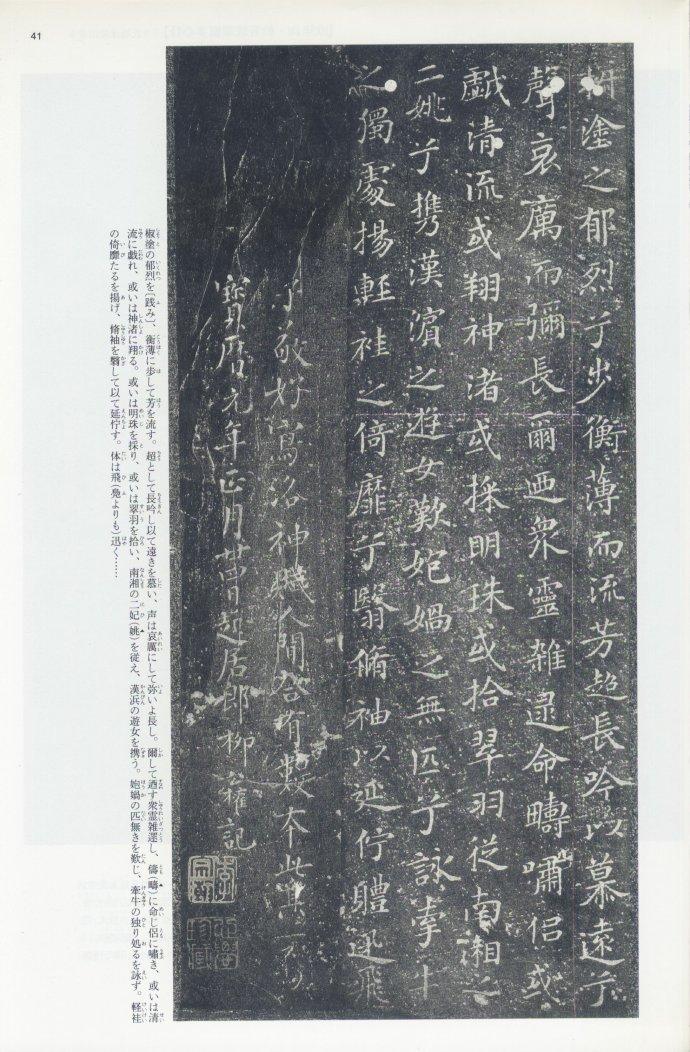 41
塗之郁烈兮步衡薄而流芳超長吟以慕遠兮
聲哀厲而彌長爾迺衆靈雜遝命疇嘯侶或
戲清流或翔神渚或採明珠或拾翠羽從南湘之
二姚兮携漢濱之遊女歎妃媧之無匹兮詠牽牛
之獨處揚輕袿之倚靡兮翳脩袖以延佇體迅飛
子敬好寫洛神賦人間合有數本此其一焉
寶曆元年正月廿四日起居郎柳公權記
椒塗の郁烈を〔践み〕、衡薄に歩して芳を流す。超として長吟し以て遠きを慕い、声は哀厲にして弥いよ長し。爾して迺す衆霊雑遝し、儔(疇)に命じ侶に嘯き、或いは清
流に戯れ、或いは神渚に翔る。或いは明珠を採り、或いは翠羽を拾い、南湘の二妃(姚)を従え、漢浜の遊女を携う。匏媧の匹無きを歎じ、牽牛の独り処るを詠ず。軽袿
の倚靡たるを揚げ、脩袖を翳して以て延佇す。体は飛(鳧よりも)迅く……